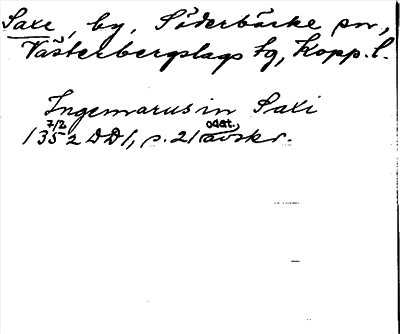 Saxe, by, Söderbärke sn,
Västerbergslags tg, Kopp. l.
Ingemarus in Saxi
7/2 odat.,
1352 DD1, s. 21 avskr.